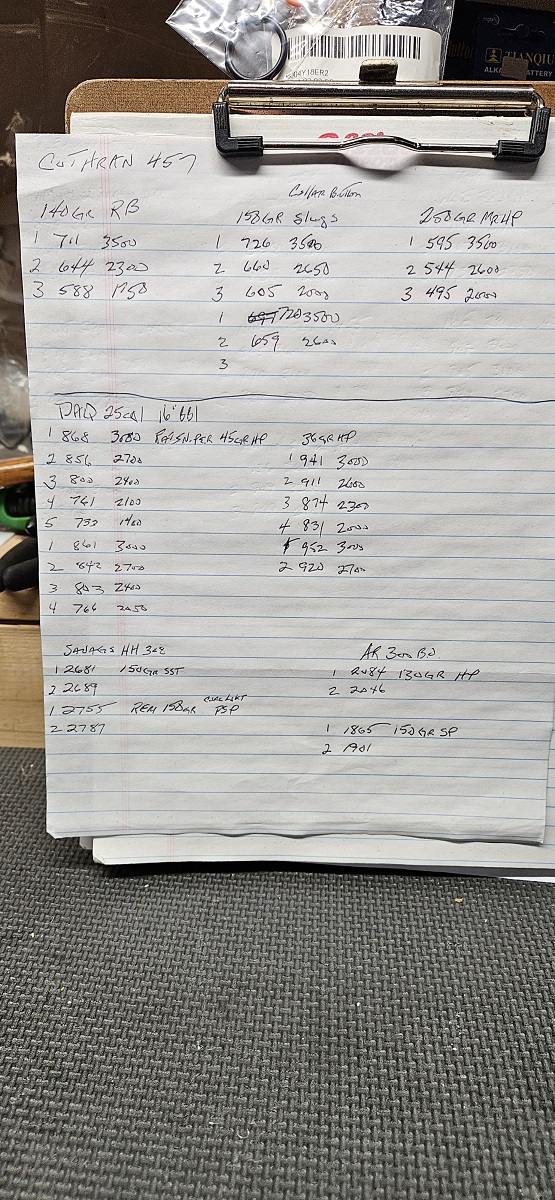 S004Y18ER2
TIANQIU
COTHRAN 457
COLLAR BUTTON
140GR RB
150GR Slugs
250GR MRHP
1 711 3500
1 726 3500
1 595 3500
2 644 2300
2 660 2650
2 544 2600
3 588 1750
3 605 2000
3 495 2000
1 720 3500
2 659 2600
3
DAQ 25cal 16" bbl
1 868 3000
45GR HP
36GR HP
2 856 2700
3 800 2400
4 761 2100
5 733 1400
1 861 3000
2 842 2700
3 803 2400
4 766 2050
1 941 3000
2 911 2600
3 874 2300
4 831 2000
1 952 3000
2 920 2700
SAVAGE HH 308
1 2681 150GR SST
2 2689
1 2755 REM 150GR CORE LOKT PSP
2 2787
AR 300 BO
1 2084 130GR HP
2 2046
1 1865 150GR SP
2 1901